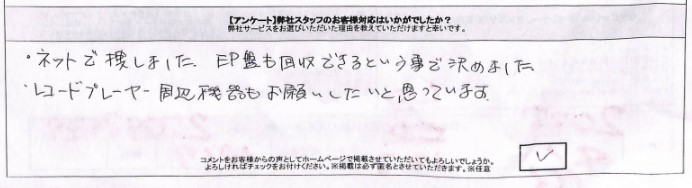 【アンケート】弊社スタッフのお客様対応はいかがでしたか？
弊社サービスをお選びいただいた理由を教えていただけますと幸いです。
・ネットで検しました EP盤も回収できるという事で決めました
・レコードプレーヤー周辺機器もお願いしたいと思っています
コメントをお客様からの声としてホームページで掲載させていただいてもよろしいでしょうか。
よろしければチェックをお付けください。※掲載は必ず匿名とさせていただきます。※任意